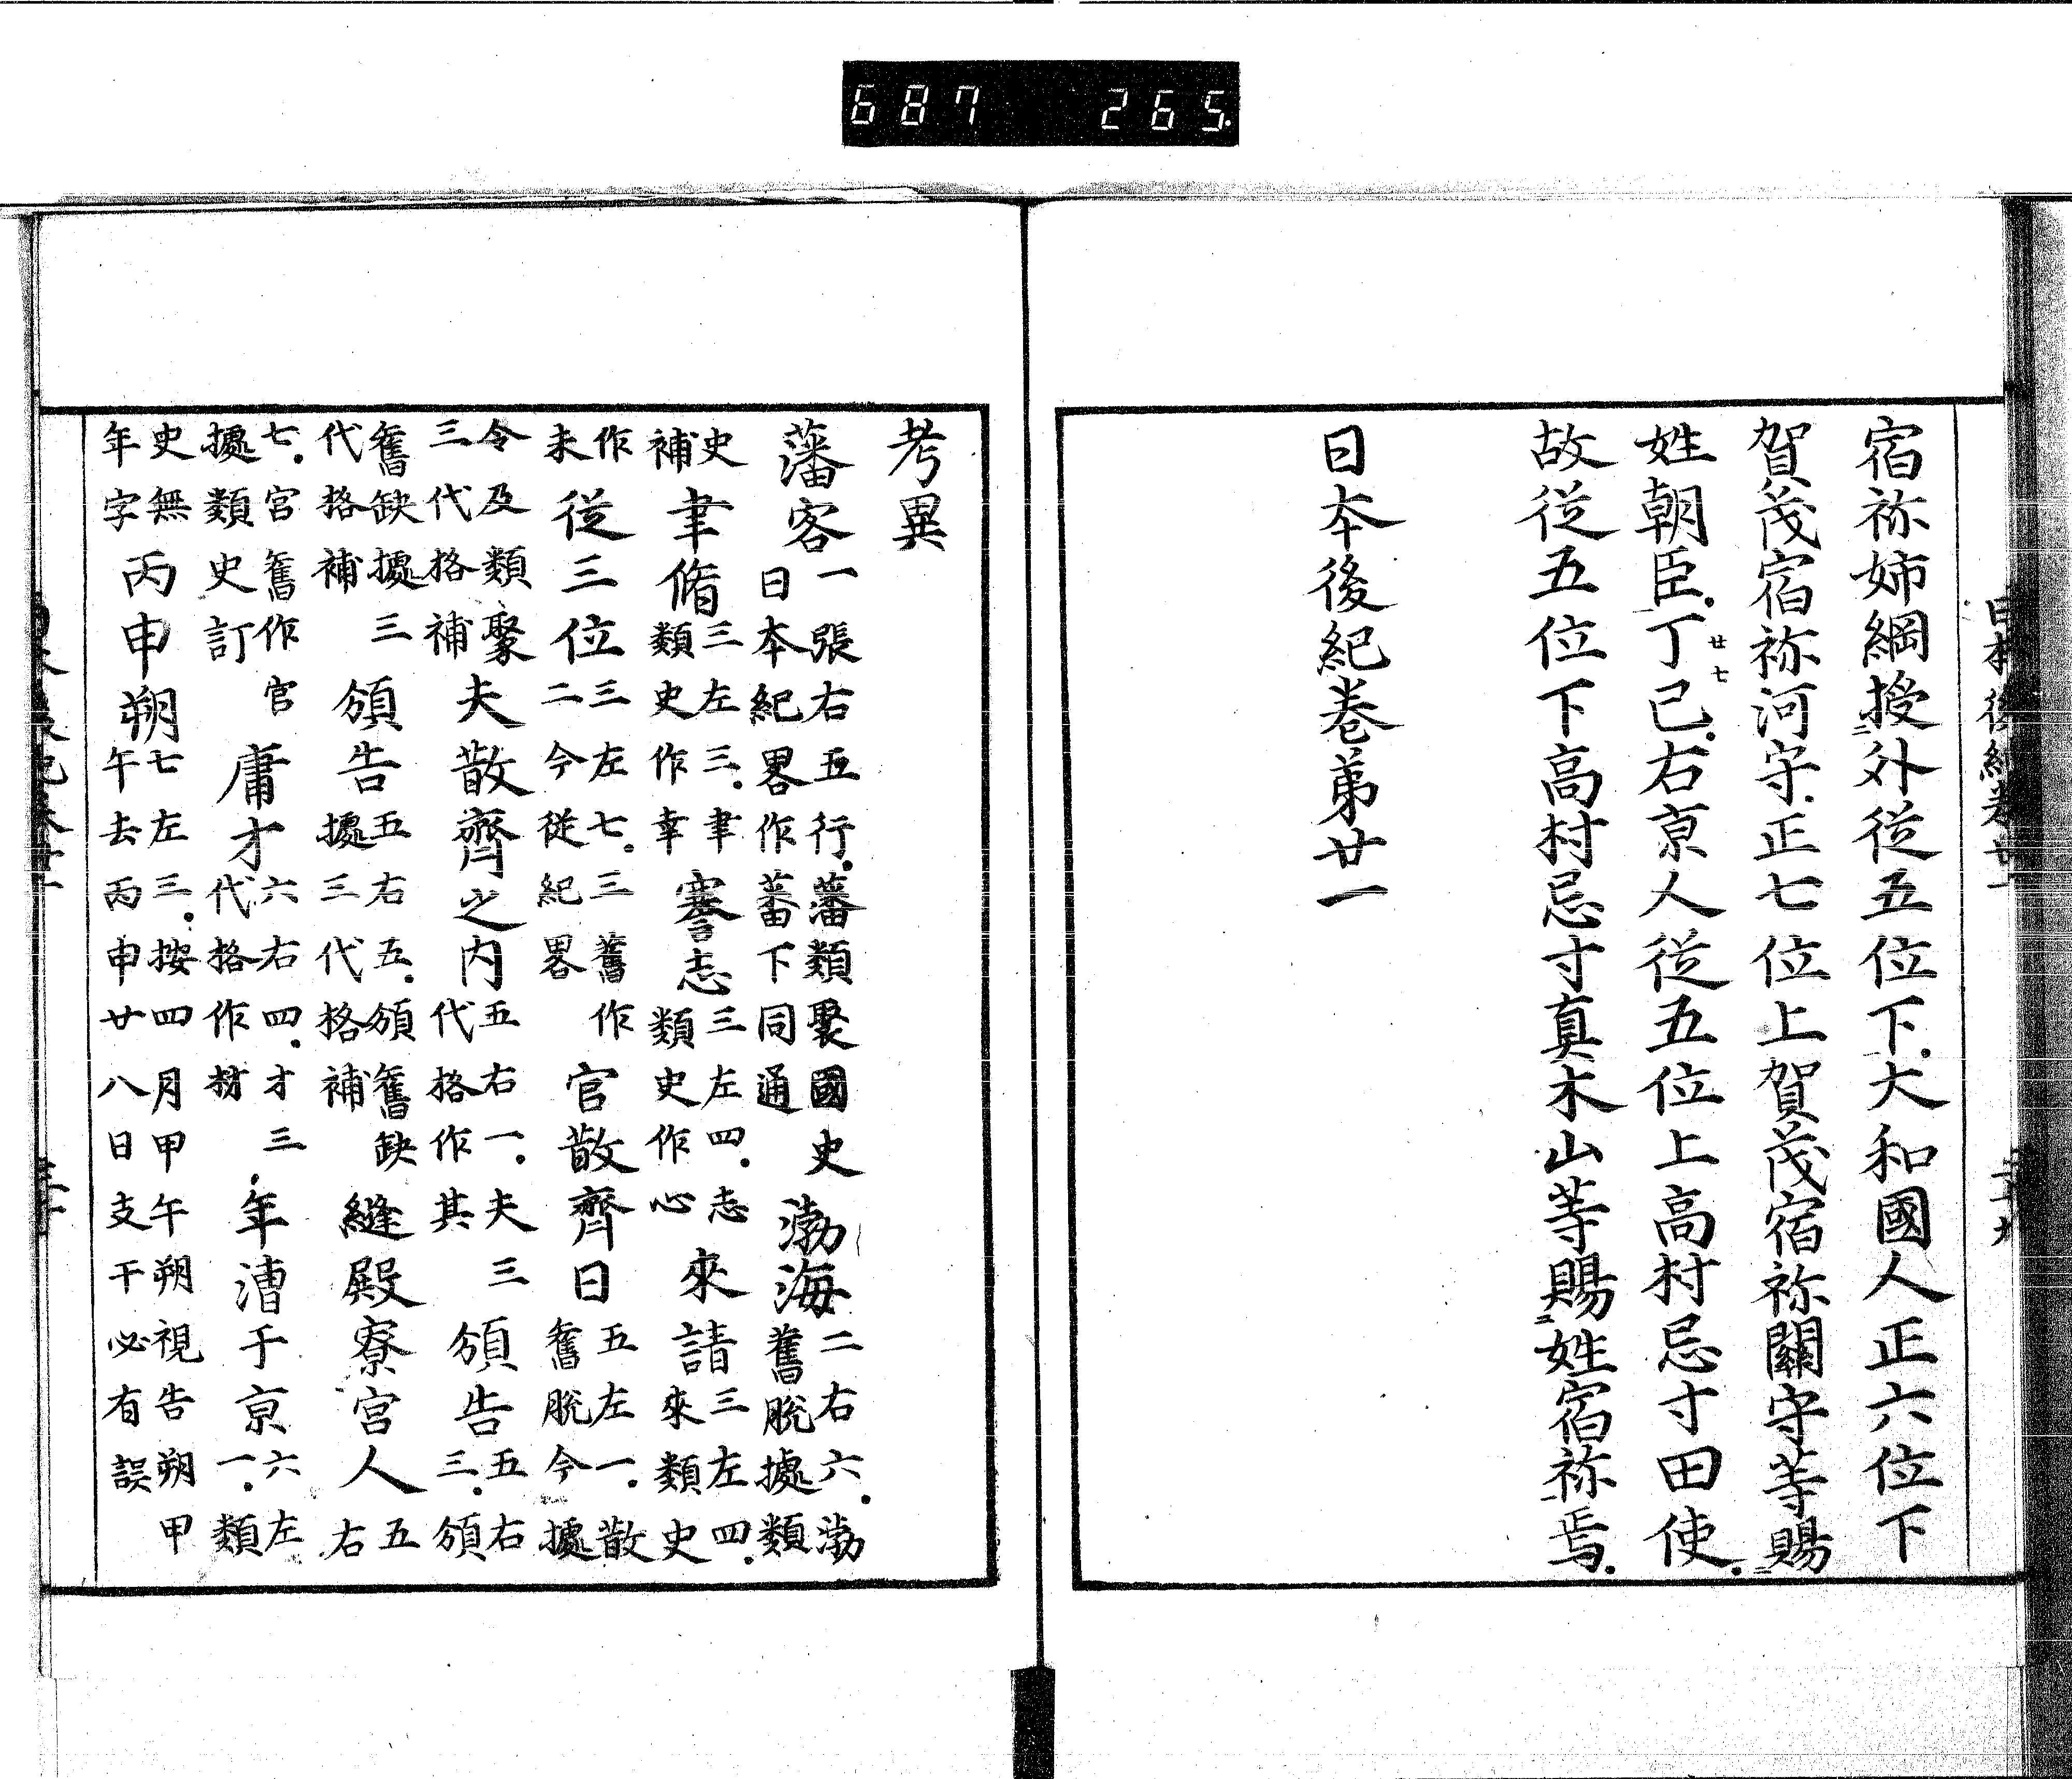 687 265
日本後紀卷廿一
宿祢姉綱授外從五位下大和國人正六位下
賀茂宿祢河守正七位上賀茂宿祢關守等賜
姓朝臣丁巳右京人從五位上高村忌寸田使
廿七
故從五位下高村忌寸真木山等賜姓宿祢焉
日本後紀卷第廿一
考異
藩客一張右五行藩類聚國史
日本紀畧作蕃下同通
渤海二右六渤
舊脫據類
史
補
聿脩三左三聿
類史作幸
謇志三左四志
類史作心
來請三左四
來類史
作
未
從三位三左七三舊作
二今從紀畧
官散齊日五左一散
舊脫今據
令及類聚
三代格補
夫散齊之内五右一夫三
代格作其
頒告五右
三頒
舊缺據三
代格補
頒告五右五頒舊缺
據三代格補
縫殿寮宮人五
右
七宮舊作官
據類史訂
庸才六右四才三
代格作材
年漕于京六左
一類
史無
年字
丙申朔七左三按四月甲午朔視告朔甲
午去丙申廿八日支干必有誤